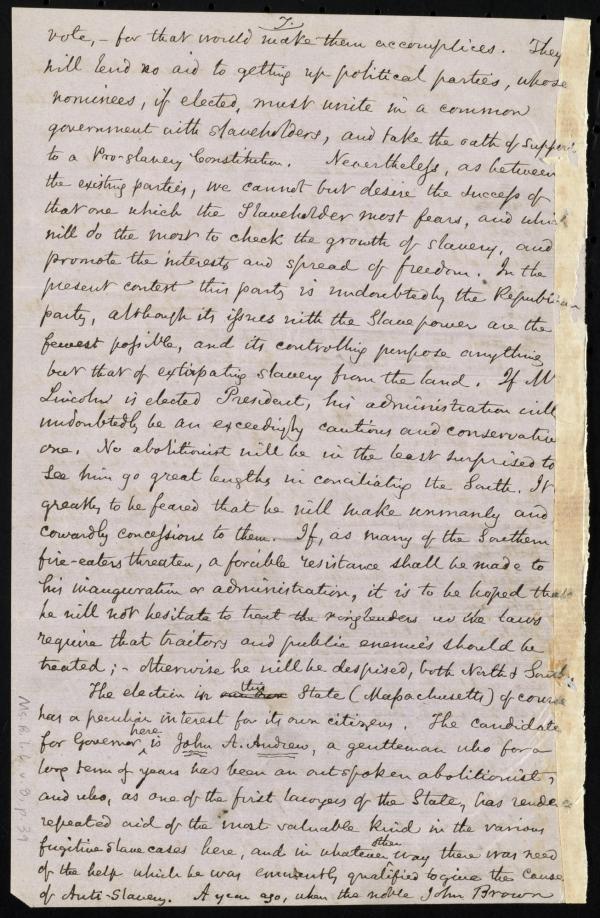 7.
vote, – for that would make them accomplices. They
will lend no aid to getting up political parties, whose
nominees, if elected, must unite in a common
government with slaveholders, and take the oath of support
to a Pro-slavery Constitution. Nevertheless, as between
the existing parties, we cannot but desire the success of
that one which the Slaveholder most fears, and which
will do the most to check the growth of slavery, and
promote the interests and spread of freedom. In the
present contest this party is undoubtedly the Republican
party, although its issues with the Slave power are the
fewest possible, and its controlling purpose anything
but that of extirpating slavery from the land. If Mr
Lincoln is elected President, his administration will
undoubtedly be an exceedingly cautious and conservative
one. No abolitionist will be in the least surprised to
see him go great lengths in conciliating the South. It
greatly to be feared that he will make unmanly and
cowardly concessions to them. If, as many of the Southern
fire-eaters threaten, a forcible resistance shall be made to
his inauguration or administration, it is to be hoped that
he will not hesitate to treat the ringleaders as the laws
require that traitors and public enemies should be
treated; – otherwise he will be despised, both North & South.
The election in this State (Massachusetts) of course
has a peculiar interest for its own citizens. The candidate
for Governor here is John A. Andrew, a gentleman who for a
long term of years has been an outspoken abolitionist,
and who, as one of the first lawyers of the State, has rendered
repeated aid of the most valuable kind in the various
fugitive slave cases here, and in whatever other way there was need
of the help which he was eminently qualified to give the cause
of Anti-Slavery. A year ago, when the noble John Brown